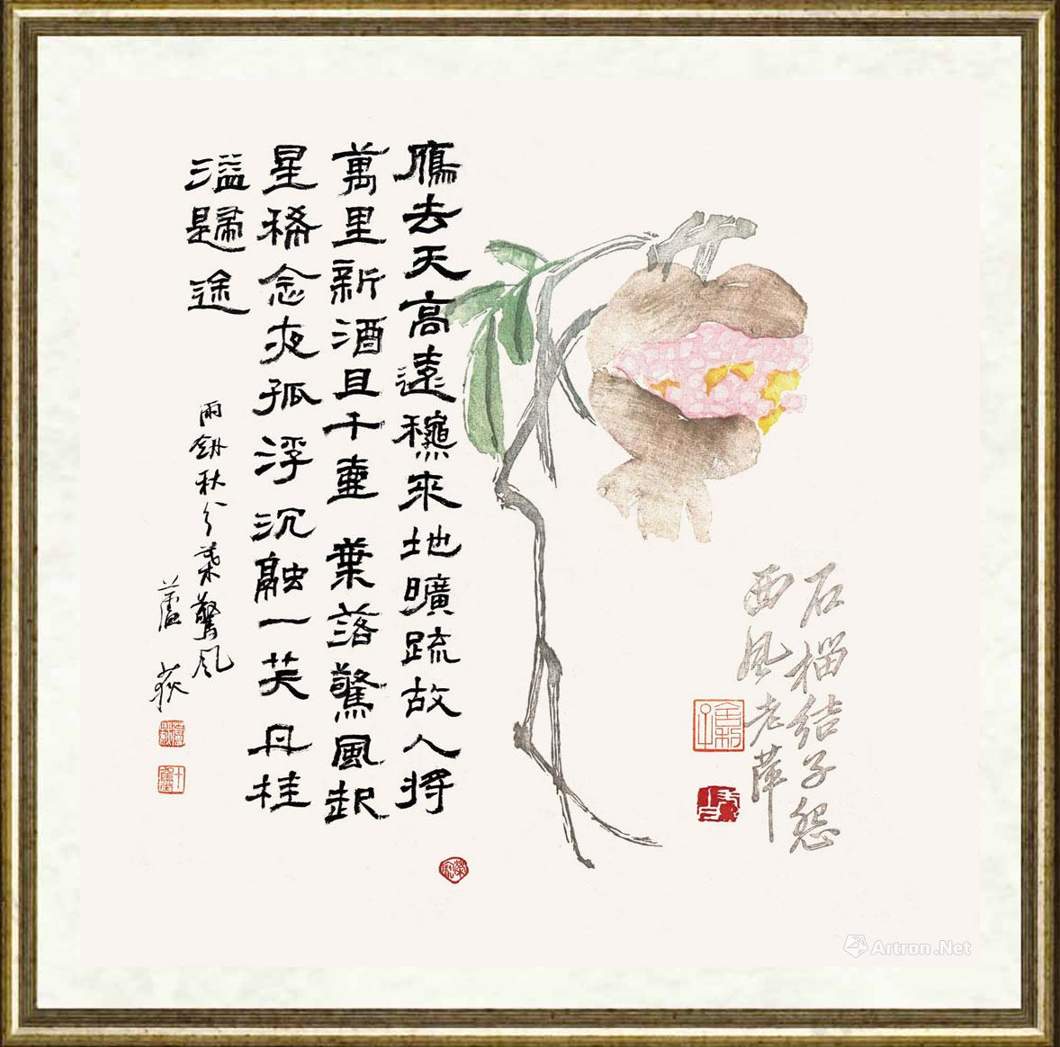 石榴結子怨
西風老萍
鴈去天高遠穐來地曠疏故人將
萬里新酒且千壷 葉落驚風起
星稀念夜孤浮沉融一笑丹桂
溢歸途
雨 秋分葉驚風
蘆荻
Artron.Net